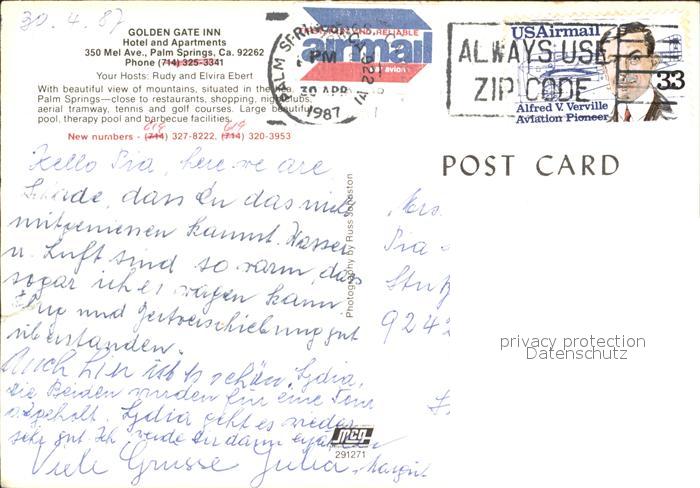 30. 4. 87
GOLDEN GATE INN
Hotel and Apartments
350 Mel Ave., Palm Springs, Ca. 92262
Phone (714) 325-3341
Your Hosts: Rudy and Elvira Ebert
With beautiful view of mountains, situated in the
Palm Springs—close to restaurants, shopping, nightclubs,
aerial tramway, tennis and golf courses. Large beautiful
pool, therapy pool and barbecue facilities.
619 619
New numbers - (714) 327-8222, (714) 320-3953
Hello Pia, here we are
Schade, dass Du das nicht
mitgeniessen kannst. Wasser
u. Luft sind so warm, dass
sogar ich es wagen kann.
Flug und Zeitverschiebung gut
überstanden.
Auch hier ist es schön. Lydia,
die Beiden wurden für eine
abgeholt. Lydia geht es wieder
sehr gut. Ich werde Dir dann erzählen
Viele Grüsse Julia Margrit
Photography by Russ Johnston
MCG
291271
RELIABLE
airmail
avion
PALM SPRINGS, CA 922
PM
30 APR
1987
ALWAYS USE
ZIP CODE
USAirmail
33
Alfred V. Verville
Aviation Pioneer
POST CARD
Mrs.
Pia
924
privacy protection
Datenschutz